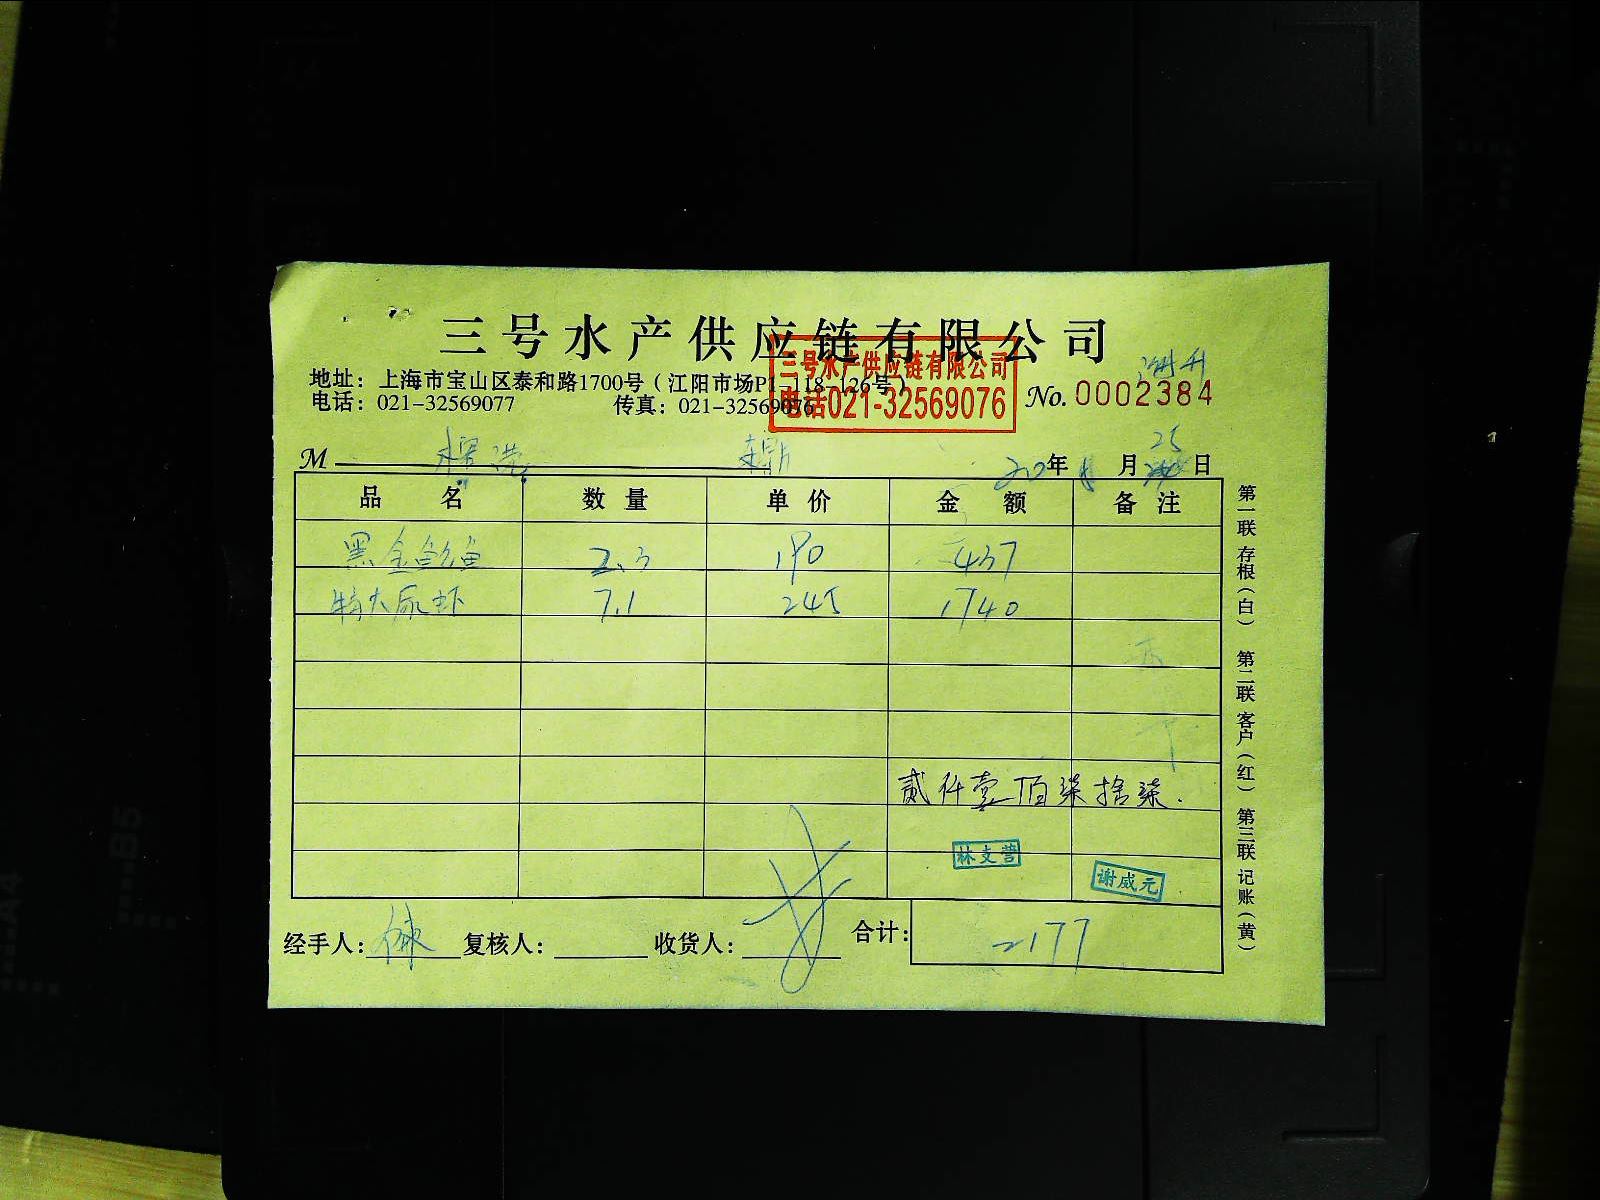 三号水产供应链有限公司
地址：上海市宝山区泰和路1700号（江阳市场P1-118-126号）
电话：021-32569077 传真：021-32569076
三号水产供应链有限公司
电话021-32569076
No. 0002384
M 20年 月25日
品名 数量 单价 金额 备注
黑金鲍鱼 2.3 190 437
特大尿虾 7.1 245 1740
贰仟壹佰柒拾柒.
林文营
谢威元
经手人： 复核人： 收货人： 合计： 2177
第一联 存根（白） 第二联 客户（红） 第三联 记账（黄）